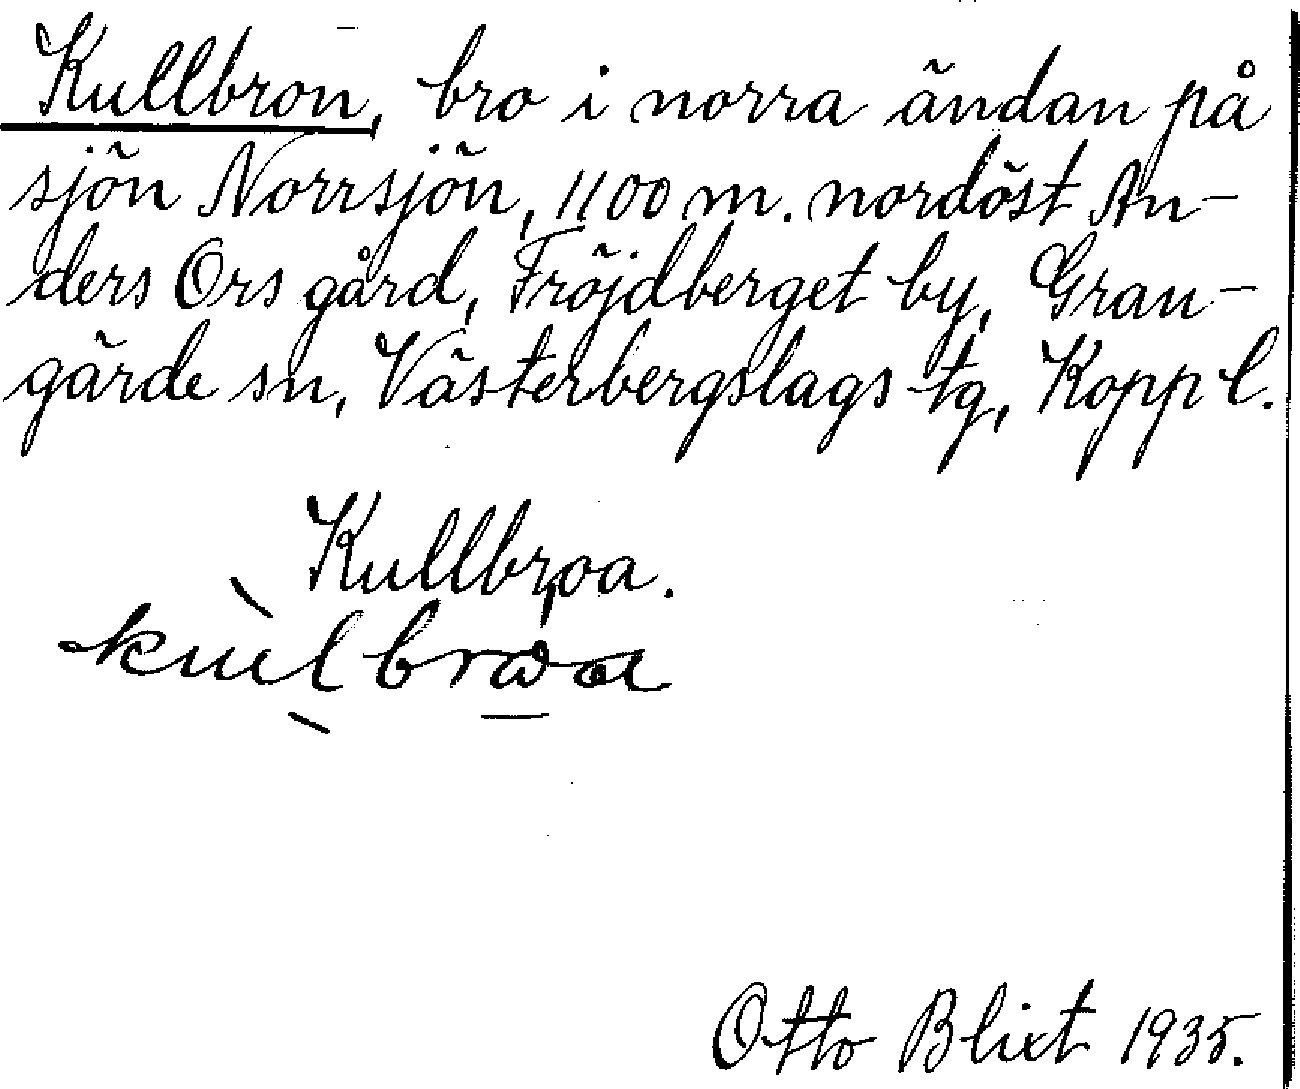 Kullbron, bro i norra ändan på
sjön Norrsjön, 1100 m. nordöst An-
ders Ors gård, Fröjdberget by, Gran-
gärde sn, Västerbergslags tg, Kopp l.
Kullbroa.
Otto Blixt 1935.